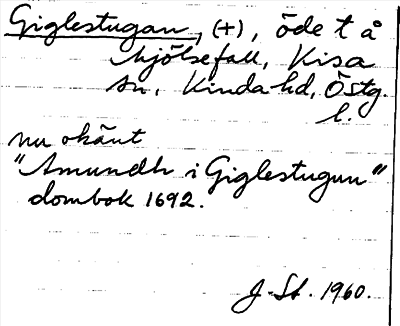 Giglestugan, (+), öde t å
Mjölsefall, Kisa
sn, Kinda hd, Östg.
l.
nu okänt
"Amundh i Giglestugun"
dombok 1692.
J. St. 1960.